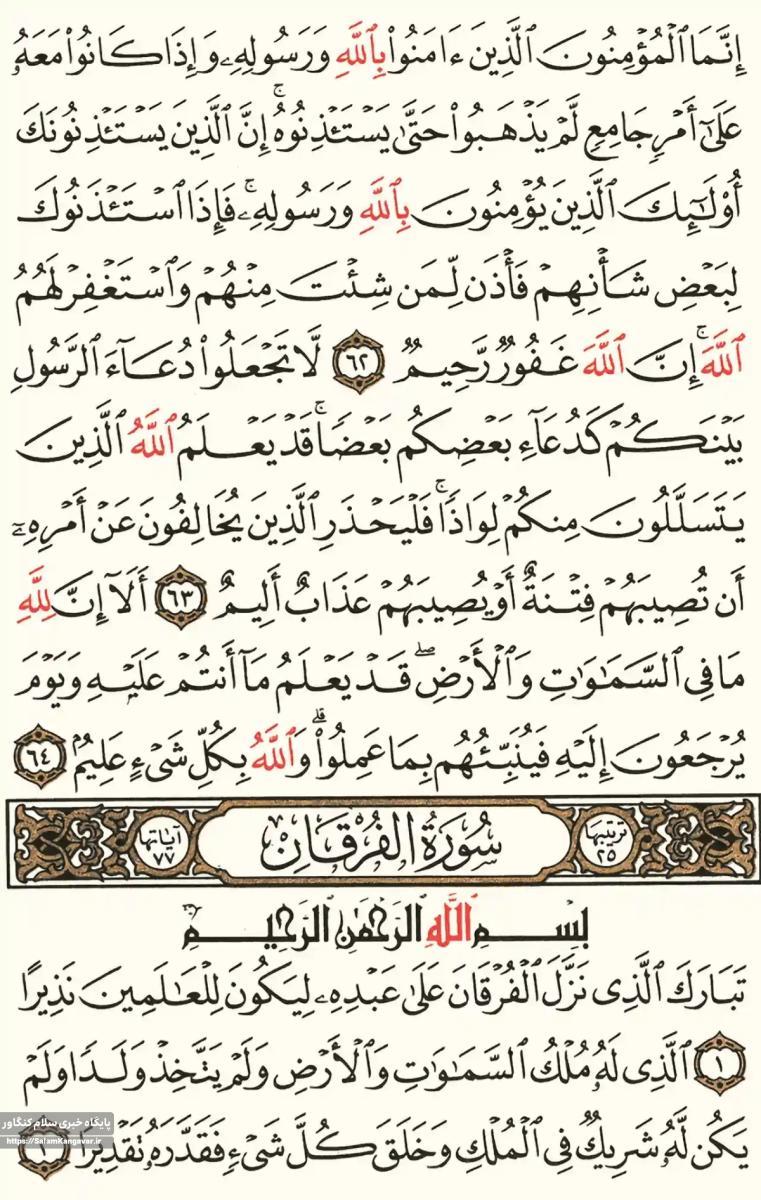 إِنَّمَا ٱلْمُؤْمِنُونَ ٱلَّذِينَ ءَامَنُوا۟ بِٱللَّهِ وَرَسُولِهِۦ وَإِذَا كَانُوا۟ مَعَهُۥ
عَلَىٰٓ أَمْرٍ جَامِعٍ لَّمْ يَذْهَبُوا۟ حَتَّىٰ يَسْتَـْٔذِنُوهُ ۚ إِنَّ ٱلَّذِينَ يَسْتَـْٔذِنُونَكَ
أُو۟لَـٰٓئِكَ ٱلَّذِينَ يُؤْمِنُونَ بِٱللَّهِ وَرَسُولِهِۦ ۚ فَإِذَا ٱسْتَـْٔذَنُوكَ
لِبَعْضِ شَأْنِهِمْ فَأْذَن لِّمَن شِئْتَ مِنْهُمْ وَٱسْتَغْفِرْ لَهُمُ
ٱللَّهَ ۚ إِنَّ ٱللَّهَ غَفُورٌ رَّحِيمٌ ٦٢ لَّا تَجْعَلُوا۟ دُعَآءَ ٱلرَّسُولِ
بَيْنَكُمْ كَدُعَآءِ بَعْضِكُم بَعْضًا ۚ قَدْ يَعْلَمُ ٱللَّهُ ٱلَّذِينَ
يَتَسَلَّلُونَ مِنكُمْ لِوَاذًا ۚ فَلْيَحْذَرِ ٱلَّذِينَ يُخَالِفُونَ عَنْ أَمْرِهِۦٓ
أَن تُصِيبَهُمْ فِتْنَةٌ أَوْ يُصِيبَهُمْ عَذَابٌ أَلِيمٌ ٦٣ أَلَآ إِنَّ لِلَّهِ
مَا فِى ٱلسَّمَـٰوَٰتِ وَٱلْأَرْضِ ۖ قَدْ يَعْلَمُ مَآ أَنتُمْ عَلَيْهِ وَيَوْمَ
يُرْجَعُونَ إِلَيْهِ فَيُنَبِّئُهُم بِمَا عَمِلُوا۟ ۗ وَٱللَّهُ بِكُلِّ شَىْءٍ عَلِيمٌۢ ٦٤
ترتيبها ٢٥ سُورَةُ الفُرْقَانِ آياتها ٧٧
بِسْمِ ٱللَّهِ ٱلرَّحْمَٰنِ ٱلرَّحِيمِ
تَبَارَكَ ٱلَّذِى نَزَّلَ ٱلْفُرْقَانَ عَلَىٰ عَبْدِهِۦ لِيَكُونَ لِلْعَـٰلَمِينَ نَذِيرًا
١ ٱلَّذِى لَهُۥ مُلْكُ ٱلسَّمَـٰوَٰتِ وَٱلْأَرْضِ وَلَمْ يَتَّخِذْ وَلَدًا وَلَمْ
يَكُن لَّهُۥ شَرِيكٌ فِى ٱلْمُلْكِ وَخَلَقَ كُلَّ شَىْءٍ فَقَدَّرَهُۥ تَقْدِيرًا
پایگاه خبری سلام کنگاور
https://SalamKangavar.ir